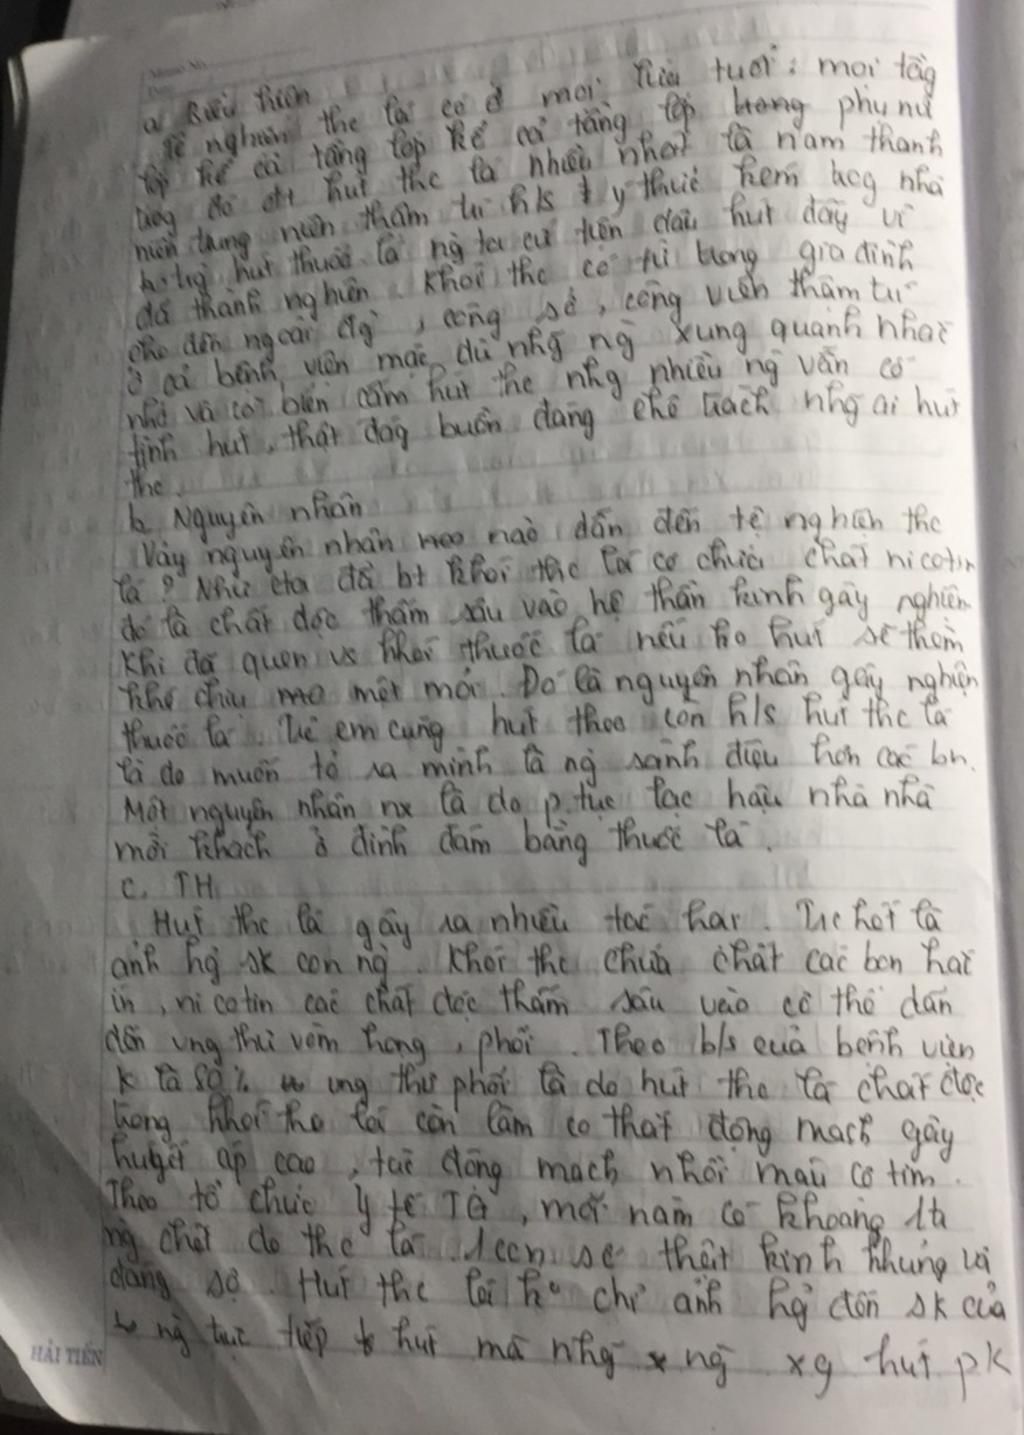 a, Biểu hiện
Tệ nghiện thc lá có ở mọi lứa tuổi: mọi tầg
lớp kể cả tầng lớp kể cả tầng lớp trong phụ nữ
trog đó đtt hút thc lá nhiều nhất là nam thanh
niên trung niên thậm trí h/s ý thức kém
hút thuốc lá ng ta cứ tiện đâu hút đấy vì
đã thành nghiện. Khói thc có từ trong gia đình
cho đến ngoài đg, công sở, công viên thậm trí
ở cả bệnh viện mặc dù nhg ng xung quanh nhắc
nhở và có biển cấm hút thc nhg nhiều ng vẫn cố
tình hút, thật đág buồn đáng chê trách nhg ai hút
thc.
b, Nguyên nhân
Vậy nguyên nhân nào dẫn đến tệ nghiện thc
lá? Như cta đã bt khói thc lá có chứa chất nicotin
đó là chất độc thấm sâu vào hệ thần kinh gây nghiện
Khi đã quen vs khói thuốc lá nếu ko hút sẽ thèm
khó chịu mệt mỏi. Đó là nguyên nhân gây nghiện
thuốc lá. Trẻ em cũng hút theo còn h/s hút thc lá
là do muốn tỏ ra mình là ng sành điệu hơn các bn.
Một nguyên nhân nx là do p.tục lạc hậu nhà nhà
mời khách ở đình đám bằng thuốc lá.
c. TH
Hút thc lá gây ra nhiều tác hại. Trc hết là
ảnh hg sk con ng. Khói thc chứa chất các bon hắc
ín, nicotin các chất độc thấm sâu vào cơ thể dẫn
đến ung thư vòm họng, phổi. Theo b/s của bệnh viện
K là 80% ung thư phổi là do hút thc lá chất độc
trong khói thc lá còn làm co thắt động mạch gây
huyết áp cao, tắc động mạch nhồi máu cơ tim.
Theo tổ chức y tế TG, mỗi năm có khoảng
ng chết do thc lá. 1 con số thật kinh khủng và
đáng sợ. Hút thc lá ko chỉ ảnh hg đến sk của
ng trực tiếp hút mà nhg ng xg hút pk
HẢI TIẾN